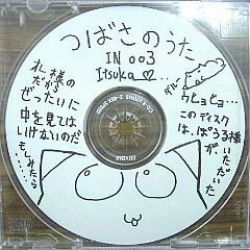 つばさのうた
IN 003
Itsuka♡...
れ様の
だが
ぜったいに
中を見ては
いけないのだ
もしみたら……
ウヒョヒョ…
このディスク
は、ぱうろが
いただいた